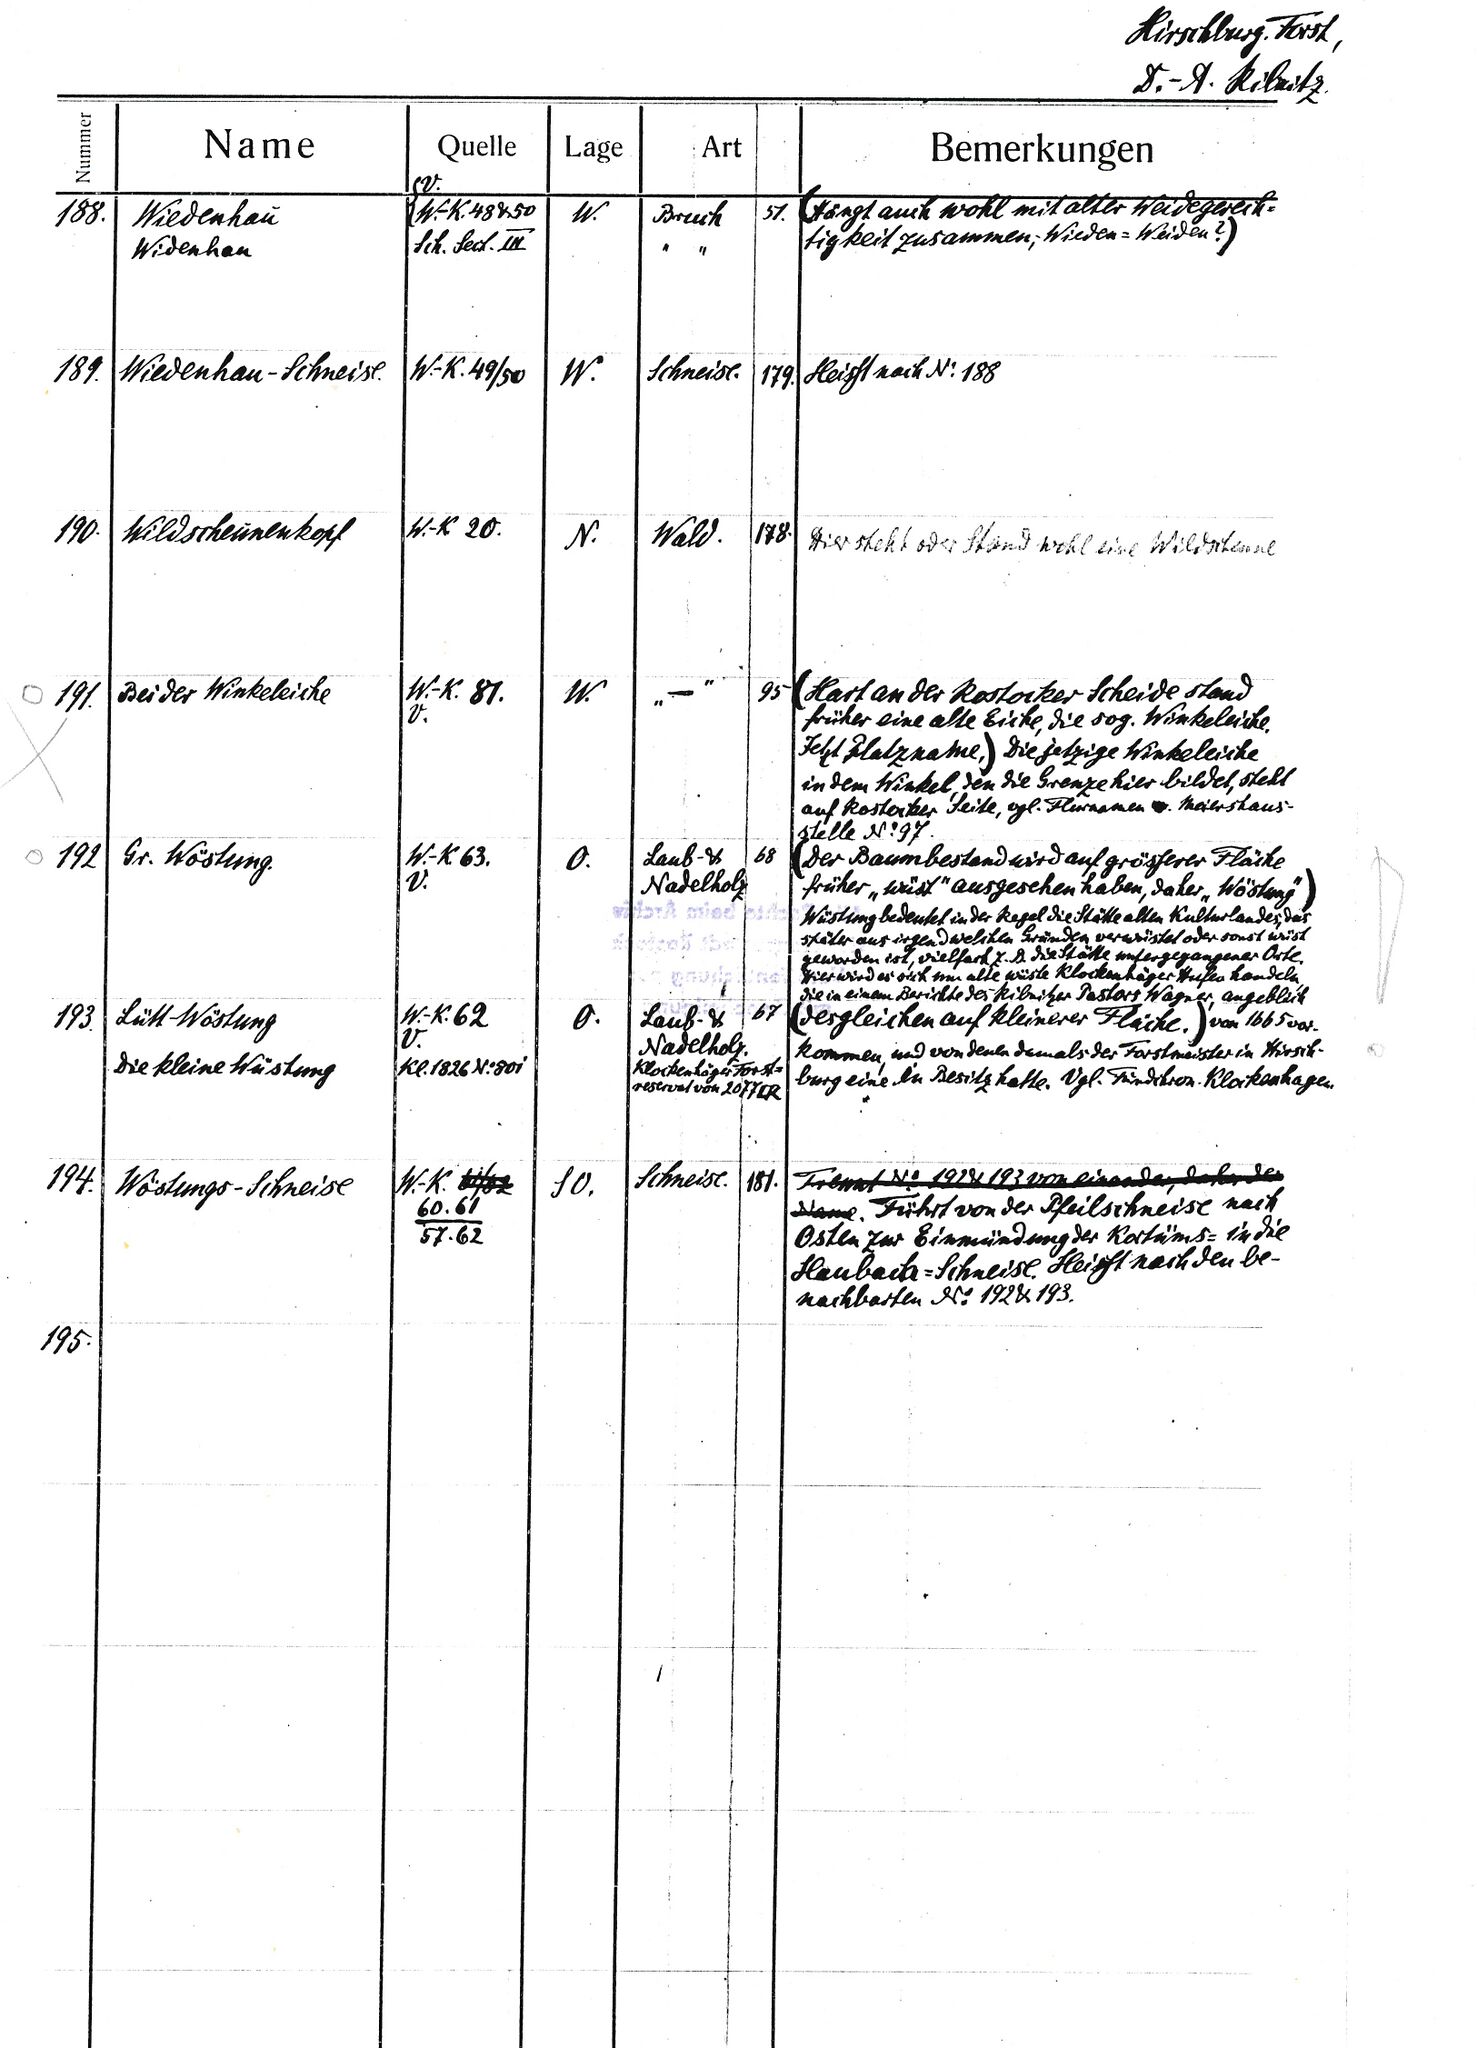 Hirschburg. Forst,
D.-A. Ribnitz.
Nummer Name Quelle Lage Art Bemerkungen
V.
188. Wiedenhau W.-K. 48 & 50 W. Bruch 51. (Hängt auch wohl mit alter Weidegerech=
Widenhau Sch. Sect. III " " tigkeit zusammen; Wieden = Weiden?)
189. Wiedenhau-Schneise. W.-K. 49/50 W. Schneise. 179. Heisst nach No. 188
190. Wildscheunenkopf W.-K 20. N. Wald. 178. Hier steht oder stand wohl eine Wildscheune
191. Bei der Winkeleiche W.-K. 81. W. „—" 95 (Hart an der Rostocker Scheide stand
V. früher eine alte Eiche, die sog. Winkeleiche.
Jetzt Platzname.) Die jetzige Winkeleiche
in dem Winkel, den die Grenze hier bildet, steht
auf Rostocker Seite, vgl. Flurnamen v. Meiershaus-
stelle No. 97.
192 Gr. Wöstung. W.-K 63. O. Laub- & 68 (Der Baumbestand wird auf grösserer Fläche
V. Nadelholz früher „wüst" ausgesehen haben, daher „Wöstung")
Wüstung bedeutet in der Regel die Stätte alten Kulturlandes, das
später aus irgendwelchen Gründen verwüstet oder sonst wüst
geworden ist, vielfach z. B. die Stätte untergegangener Orte.
Hier wird es sich um alte wüste Klockenhäger Hufen handeln,
die in einem Berichte des Ribnitzer Pastors Wagner, angeblich
193. Lütt-Wöstung W.-K. 62 O. Laub- & 67 (desgleichen auf kleinerer Fläche.) von 1665 vor-
V. Nadelholz. kommen, und von denen damals der Forstmeister in Hirsch-
Die kleine Wüstung Kl. 1826 No. 801 Klockenhäger Forst= burg eine in Besitz hatte. Vgl. Klockenhagen.
reservat von 2077 □R
194. Wöstungs-Schneise W.-K. 61/62 SO. Schneise. 181. Trennt No. 192 & 193 von einander, daher der
60. 61 Name. Führt von der Pfeilschneise nach
57. 62 Osten zur Einmündung der Kortüms= in die
Haubach=Schneise. Heisst nach den be-
nachbarten No. 192 & 193.
195.